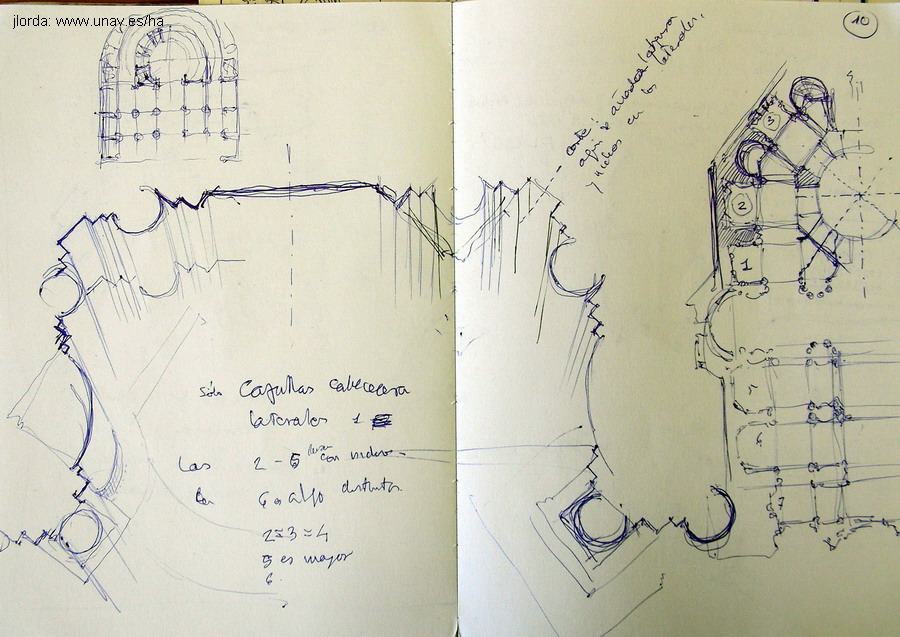 jlorda: www.unav.es/ha
10
corte:
aquí se añade
y nichos en los laterales.
3
2
1
5
6
7
sólo capillas cabecera
laterales 1
Las 2 - 5 con
La 6 es algo distinta
2 = 3 = 4
5 es mayor
6.